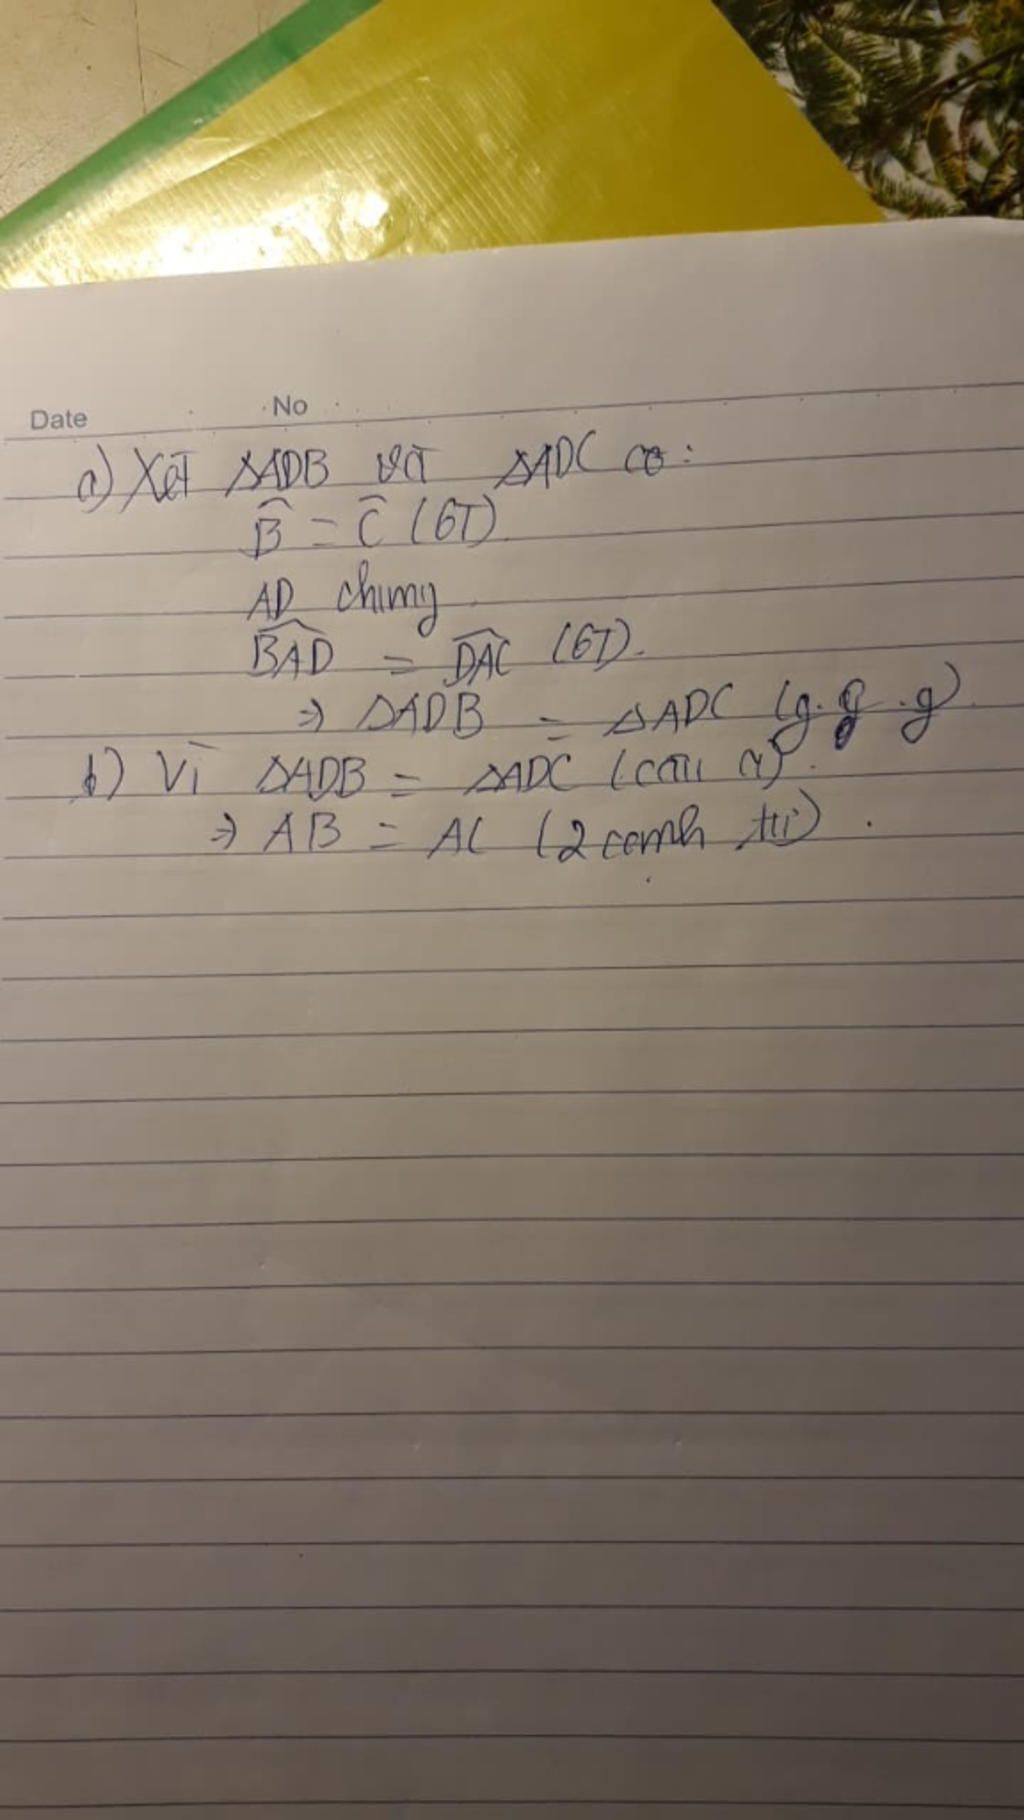 Date No
a) Xét ΔADB và ΔADC có:
B̂ = Ĉ (GT)
AD chung
BAD̂ = DAĈ (GT).
⇒ ΔADB = ΔADC (g.g.g)
b) Vì ΔADB = ΔADC (câu a).
⇒ AB = AC (2 cạnh tư).